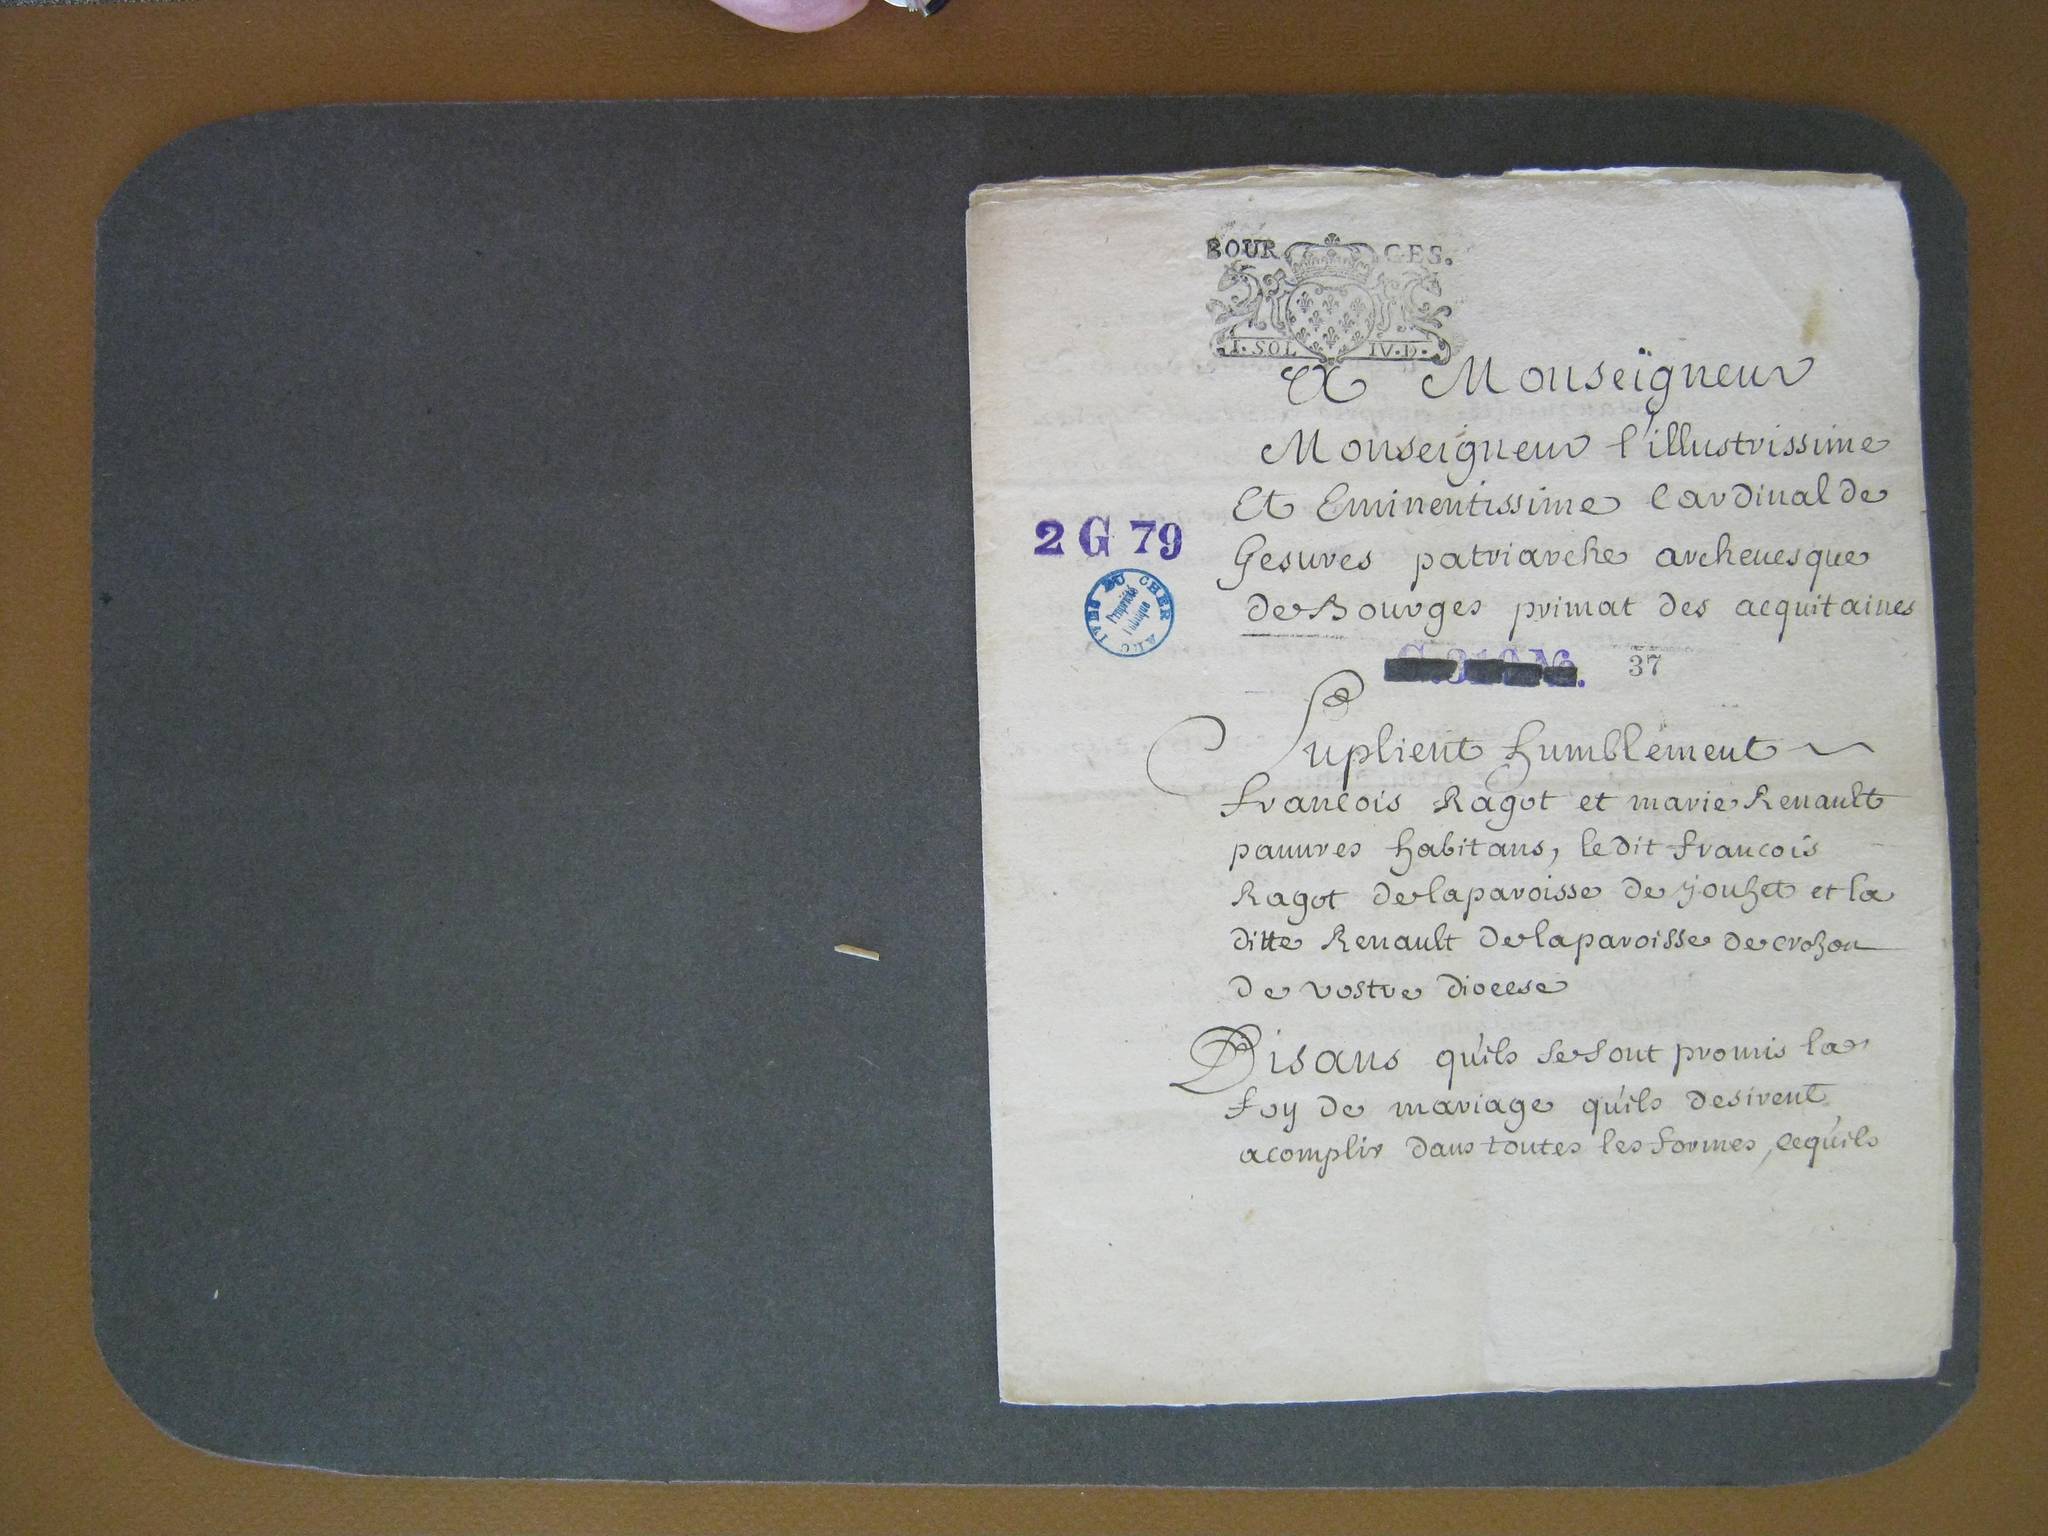 BOURGES.
I. SOL IV. D.
A Monseigneur
Monseigneur l'illustrissime
Et Eminentissime Cardinal de
Gesvres patriarche archevesque
de Bourges primat des acquitaines
2 G 79
ARCHIVES DU CHER
Propriété
Publique
37
Suplient humblement
francois Ragot et marie Renault
pauvres habitans, le dit francois
Ragot de la paroisse de jouhet et la
ditte Renault de la paroisse de crozon
de vostre diocese
Disans qu'ils se sont promis la
foy de mariage qu'ils desirent
acomplir dans toutes les formes, ce qu'ils